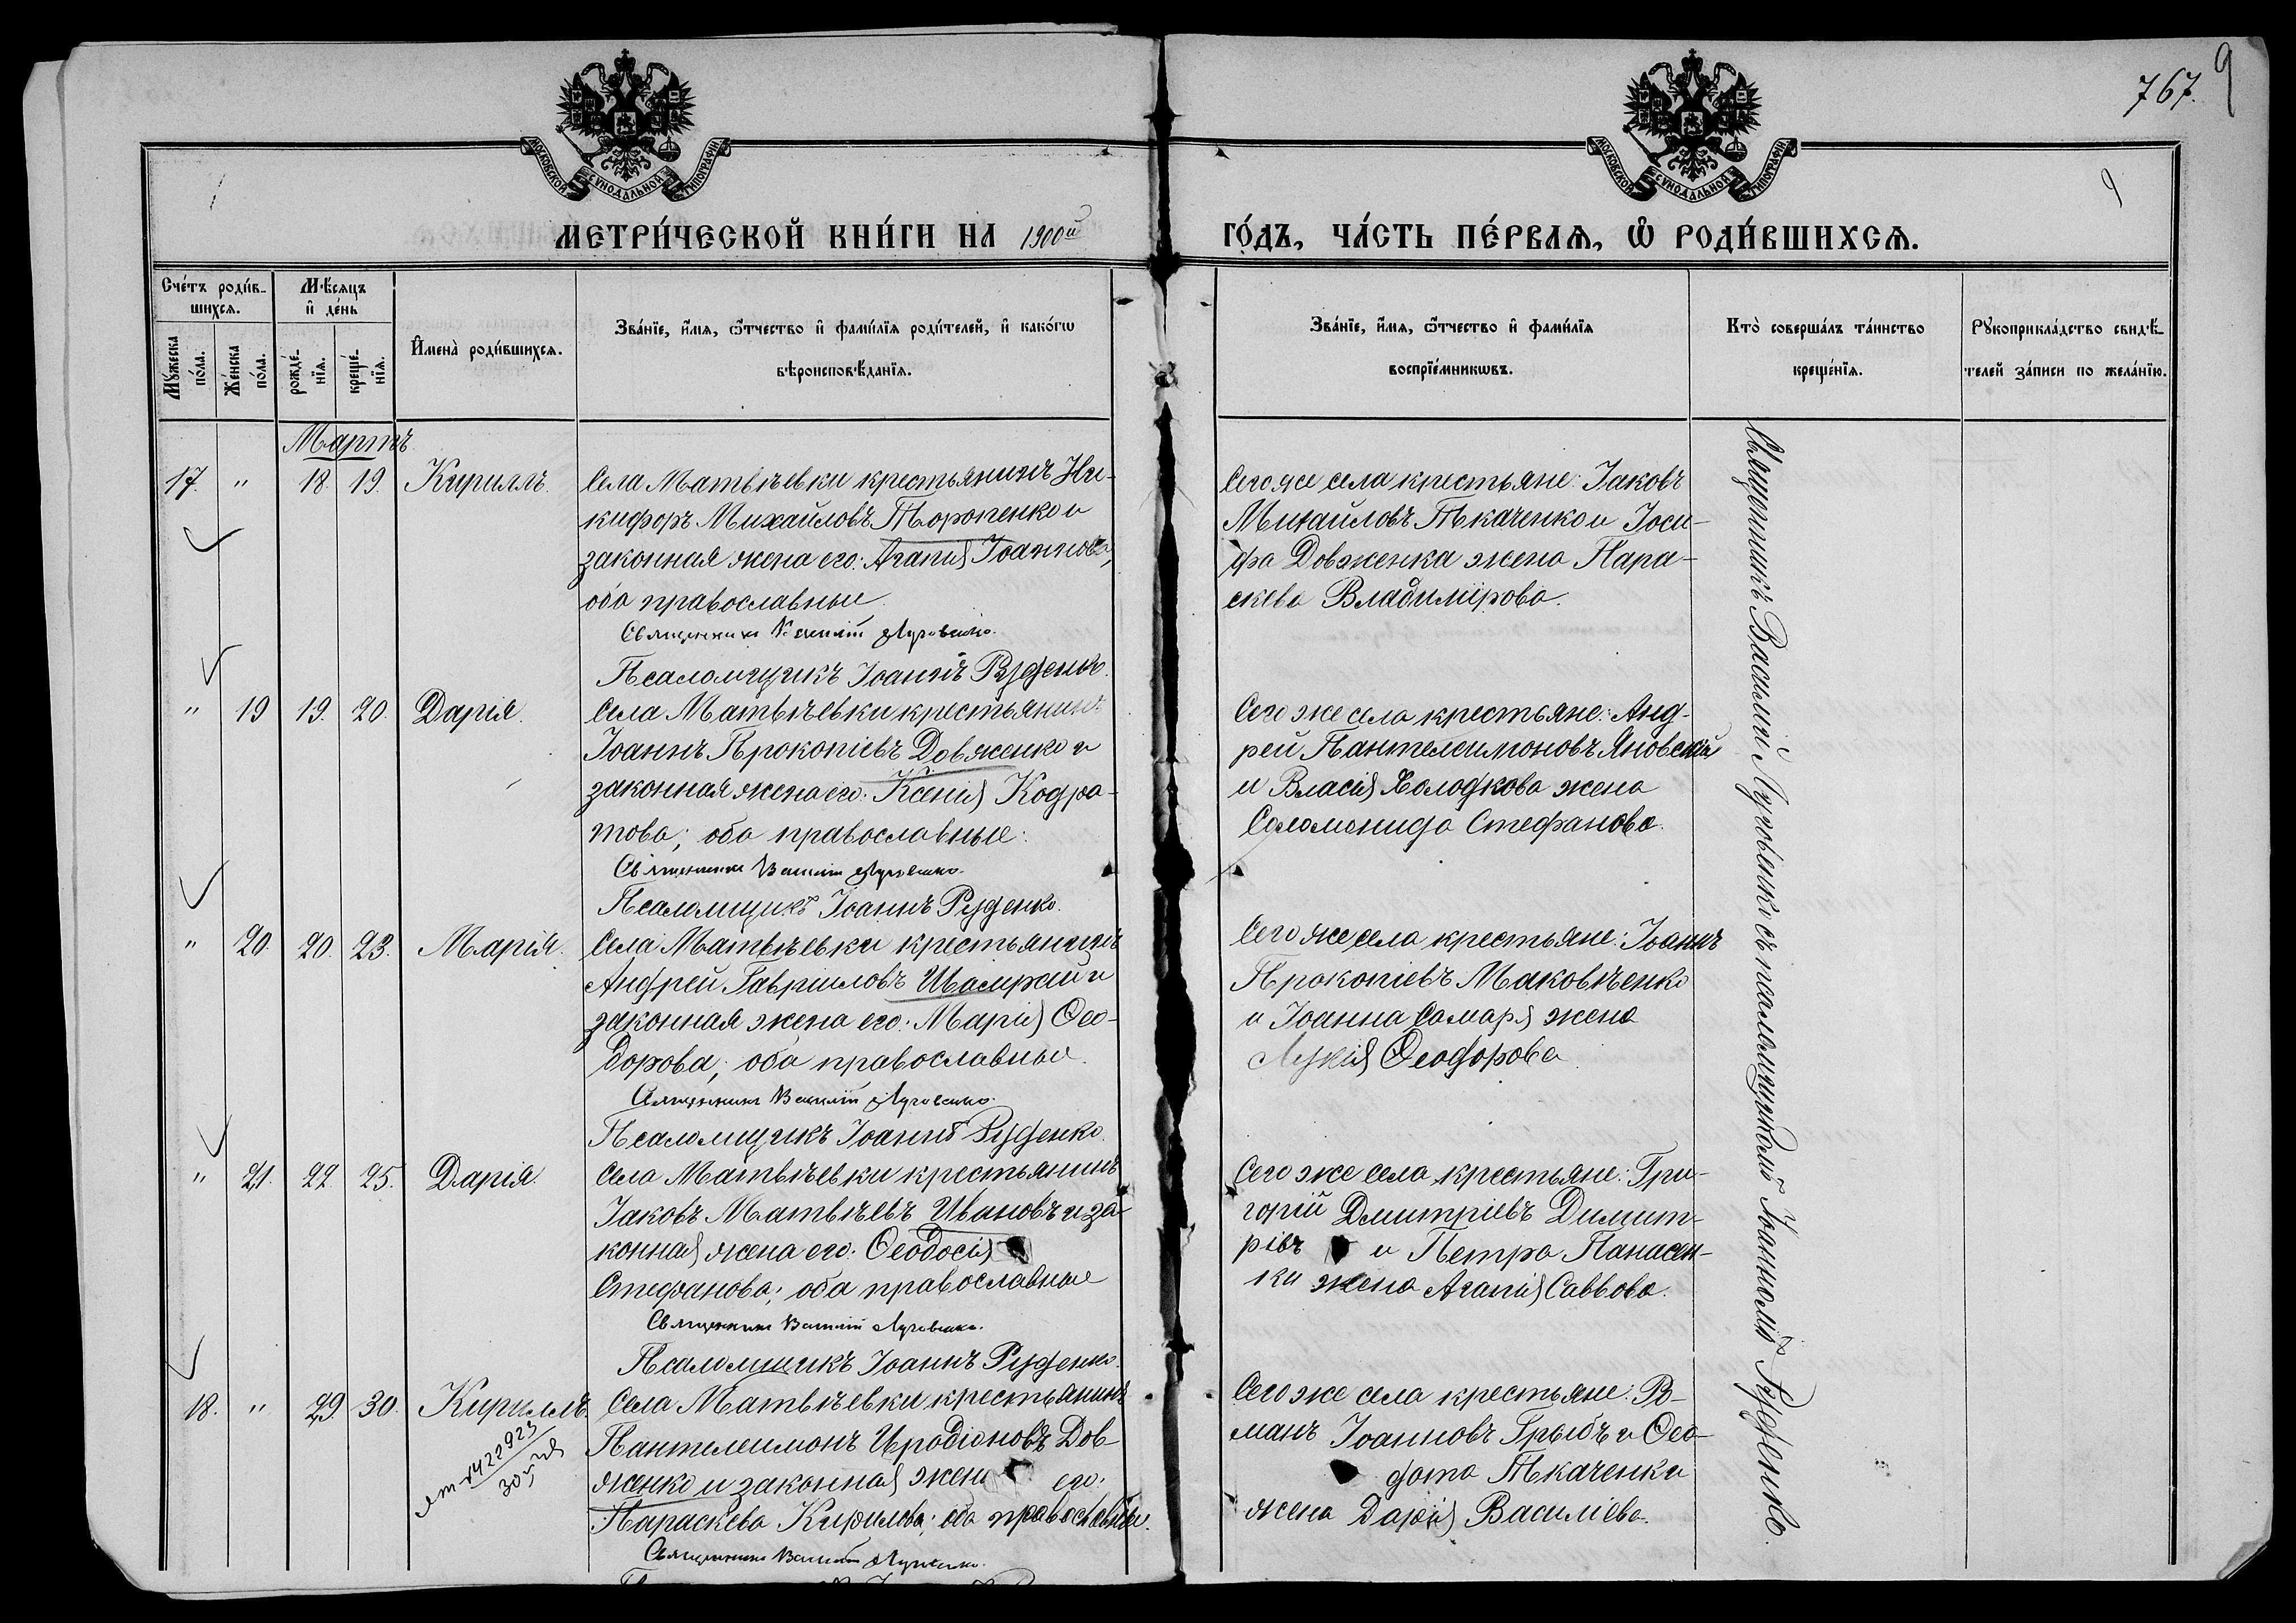 767. 9
9
МОСКОВСКОЙ СѴНОДАЛЬНОЙ ТИПОГРАФІИ
МОСКОВСКОЙ СѴНОДАЛЬНОЙ ТИПОГРАФІИ
МЕТРИ́ЧЕСКОЙ КНИ́ГИ НА 1900й ГО́ДЪ, ЧА́СТЬ ПЕ́РВАѦ, Ѡ҆ РОДИ́ВШИХСѦ.
Сче́тъ роди́в-
шихсѧ.
Мѣ́сяцъ
и҆ де́нь
Мꙋ́жеска
по́ла.
Же́нска
по́ла.
рожде́-
нїѧ.
креще́-
нїѧ.
И҆мена̀ роди́вшихсѧ.
Зва́нїе, и҆́мѧ, ѻ҆́тчество и҆ фами́лїѧ роди́телей, и҆ како́гѡ
вѣроисповѣ́данїѧ.
Зва́нїе, и҆́мѧ, ѻ҆́тчество и҆ фами́лїѧ
воспрїе́мникѡвъ.
Кто̀ соверша́лъ та́инство
креще́нїѧ.
Рꙋкоприкла́дство свидѣ́-
телей за́писи по жела́нїю.
Мартъ
17. " 18. 19. Кириллъ.
Села Матвѣевки крестьянинъ Ни-
кифоръ Михайловъ Торопенко и
законная жена его: Агапія Іоаннова,
оба православные.
Священникъ Василій Луговенко.
Псаломщикъ Іоаннъ Руденко.
Сего же села крестьяне: Іаковъ
Михайловъ Ткаченко и Іоси-
фа Довженка жена Пара-
скева Владимірова.
" 19 19. 20. Дарія.
Села Матвѣевки крестьянинъ
Іоаннъ Прокопіевъ Довженко и
законная жена его: Ксенія Кодра-
това; оба православные:
Священникъ Василій Луговенко.
Псаломщикъ Іоаннъ Руденко.
Сего же села крестьяне: Анд-
рей Пантелеимоновъ Яновскій
и Власія Холодкова жена
Соломонида Стефанова.
" 20. 20. 23. Марія.
Села Матвѣевки крестьянинъ
Андрей Гавріиловъ Шамрай и
законная жена его: Марія Ѳео-
дорова; оба православные.
Священникъ Василій Луговенко.
Псаломщикъ Іоаннъ Руденко.
Сего же села крестьяне: Іоаннъ
Прокопіевъ Маковѣенко
и Іоанна Самаря жена
Лукія Ѳеодорова
" 21. 22. 25. Дарія.
Села Матвѣевки крестьянинъ
Іаковъ Матвѣевъ Ивановъ и за-
конная жена его: Ѳеодосія
Стефанова; оба православные
Священникъ Василій Луговенко.
Псаломщикъ Іоаннъ Руденко.
Сего же села крестьяне: Гри-
горій Дмитріевъ Димит-
рівъ и Петра Панасен-
ки жена Агапія Саввова.
18. " 29. 30. Кириллъ.
Села Матвѣевки крестьянинъ
Пантелеимонъ Иродіоновъ Дов-
женко и законная жена его:
Параскева Кирилова; оба православные.
Священникъ Василій Луговенко.
Сего же села крестьяне: Ро-
манъ Іоанновъ Грыбъ и Ѳео-
дота Ткаченки
жена Дарія Василіева.
Священникъ Василій Луговенко съ псаломщикомъ Іоанномъ Руденко.